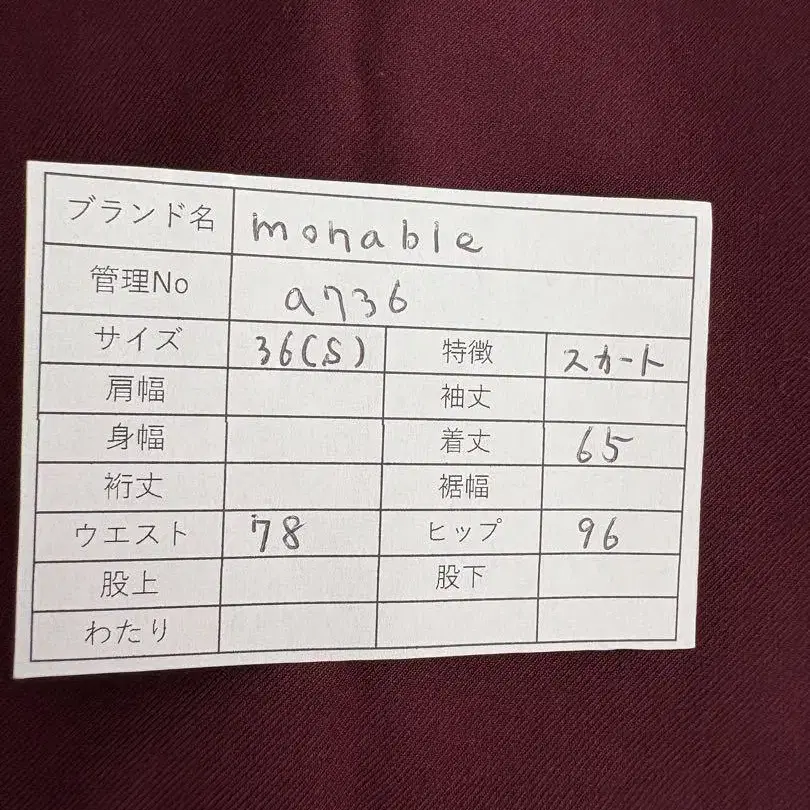 ブランド名 monable
管理No a736
サイズ 36(S) 特徴 スカート
肩幅 袖丈
身幅 着丈 65
裄丈 裾幅
ウエスト 78 ヒップ 96
股上 股下
わたり